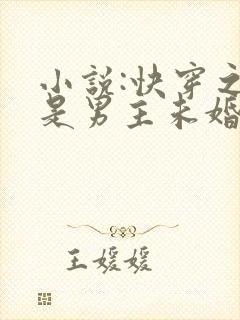 小说:快穿之
是男主未婚
王媛媛